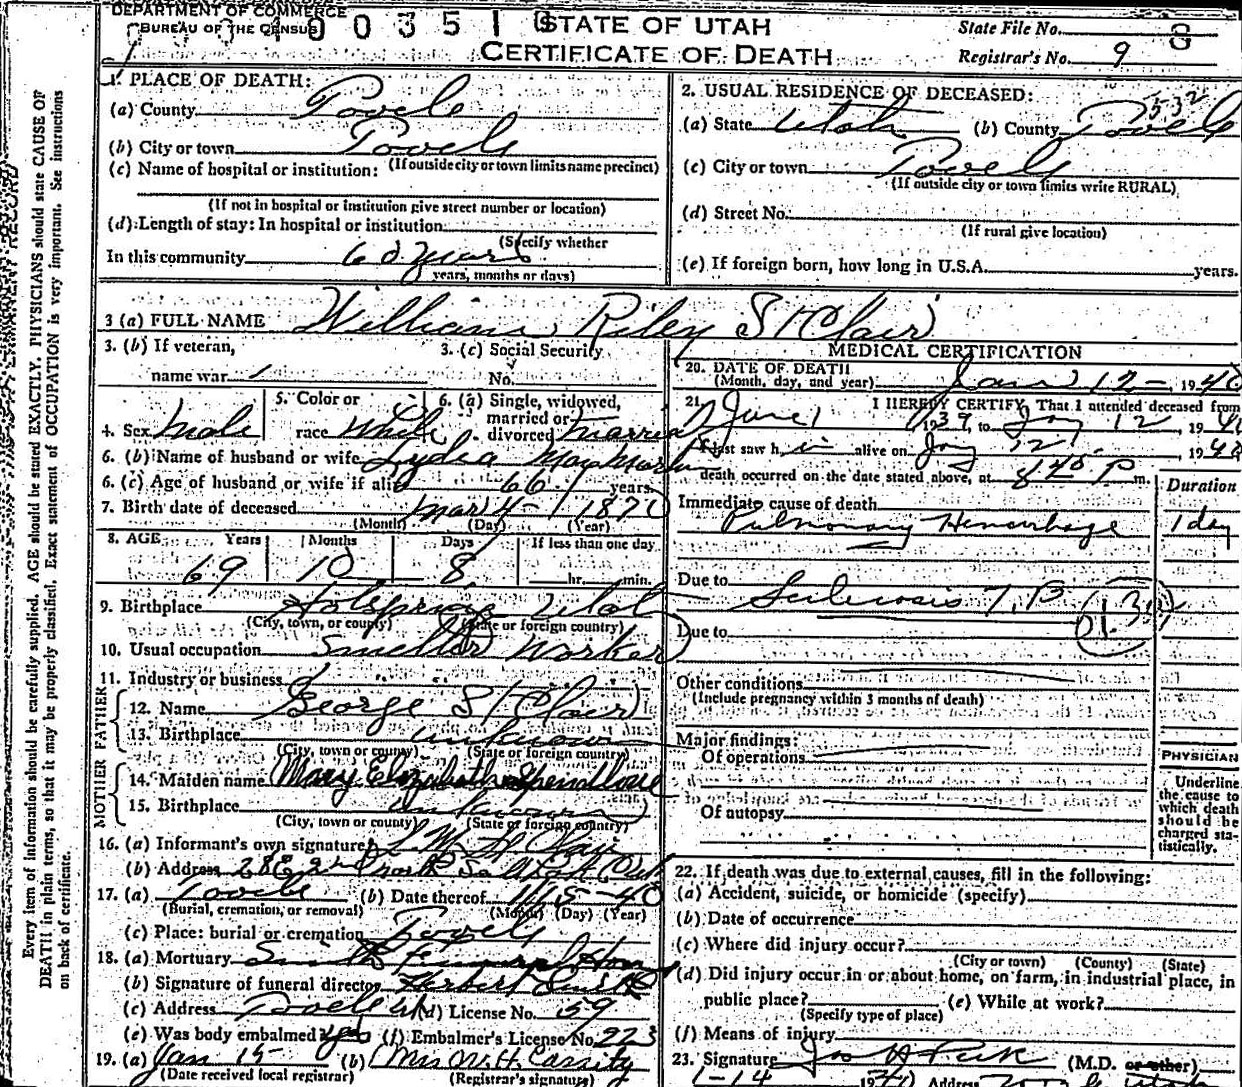 DEPARTMENT OF COMMERCE
BUREAU OF THE CENSUS
STATE OF UTAH
CERTIFICATE OF DEATH
State File No. 8
Registrar's No. 9
Every item of information should be carefully supplied. AGE should be stated EXACTLY. PHYSICIANS should state CAUSE OF
DEATH in plain terms, so that it may be properly classified. Exact statement of OCCUPATION is very important. See instructions
on back of certificate.
1. PLACE OF DEATH:
(a) County Tooele
(b) City or town Tooele
(If outside city or town limits name precinct)
(c) Name of hospital or institution:
(If not in hospital or institution give street number or location)
(d) Length of stay: In hospital or institution
(Specify whether
In this community 60 years
years, months or days)
2. USUAL RESIDENCE OF DECEASED:
532
(a) State Utah (b) County Tooele
(c) City or town Tooele
(If outside city or town limits write RURAL)
(d) Street No.
(If rural give location)
(e) If foreign born, how long in U.S.A. years.
3 (a) FULL NAME William Riley St Clair
3. (b) If veteran,
name war
3. (c) Social Security
No.
4. Sex Male
5. Color or
race White
6. (a) Single, widowed,
married or
divorced Married
6. (b) Name of husband or wife Lydia May Martin
6. (c) Age of husband or wife if alive 66 years
7. Birth date of deceased Mar 4 - 1870
(Month) (Day) (Year)
8. AGE Years Months Days If less than one day
69 10 8 hr. min.
9. Birthplace Hotsprings Utah
(City, town, or county) (State or foreign country)
10. Usual occupation Smelter Worker
11. Industry or business
FATHER
12. Name George St Clair
13. Birthplace unknown
(City, town or county) (State or foreign country)
MOTHER
14. Maiden name Mary Elizabeth Spendlove
15. Birthplace unknown
(City, town or county) (State or foreign country)
16. (a) Informant's own signature
(b) Address 28 E 2nd North Salt Lake Utah
17. (a) Tooele (b) Date thereof 1/15-40
(Burial, cremation, or removal) (Month) (Day) (Year)
(c) Place: burial or cremation Tooele
18. (a) Mortuary Smith Funeral Home
(b) Signature of funeral director Herbert Smith
(c) Address Tooele Ut (d) License No. 59
(e) Was body embalmed? yes (f) Embalmer's License No. 223
19. (a) Jan 15 (b) Mrs W. H. Cassity
(Date received local registrar) (Registrar's signature)
MEDICAL CERTIFICATION
20. DATE OF DEATH
(Month, day, and year) Jan 12 - 1940
21. I HEREBY CERTIFY, That I attended deceased from
June 1 1939, to Jan 12, 1940
I last saw h im alive on Jan 1940
death occurred on the date stated above, at 840 P m.
Duration
Immediate cause of death
Pulmonary Hemorrhage 1 day
Due to T.B.
Due to
Other conditions
(Include pregnancy within 3 months of death)
Major findings:
Of operations
Of autopsy
PHYSICIAN
Underline
the cause to
which death
should be
charged sta-
tistically.
22. If death was due to external causes, fill in the following:
(a) Accident, suicide, or homicide (specify)
(b) Date of occurrence
(c) Where did injury occur?
(City or town) (County) (State)
(d) Did injury occur in or about home, on farm, in industrial place, in
public place? (e) While at work?
(Specify type of place)
(f) Means of injury
23. Signature Jos H Peck (M.D. or other)
1-14 Address